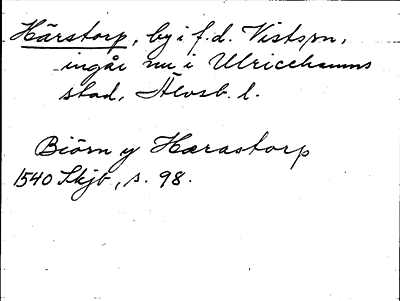 Härstorp, by i f.d. Vistspn,
ingår nu i Ulricehamns
stad, Älvsb. l.
Biörn y Hærastorp
1540 Skjb, s. 98.